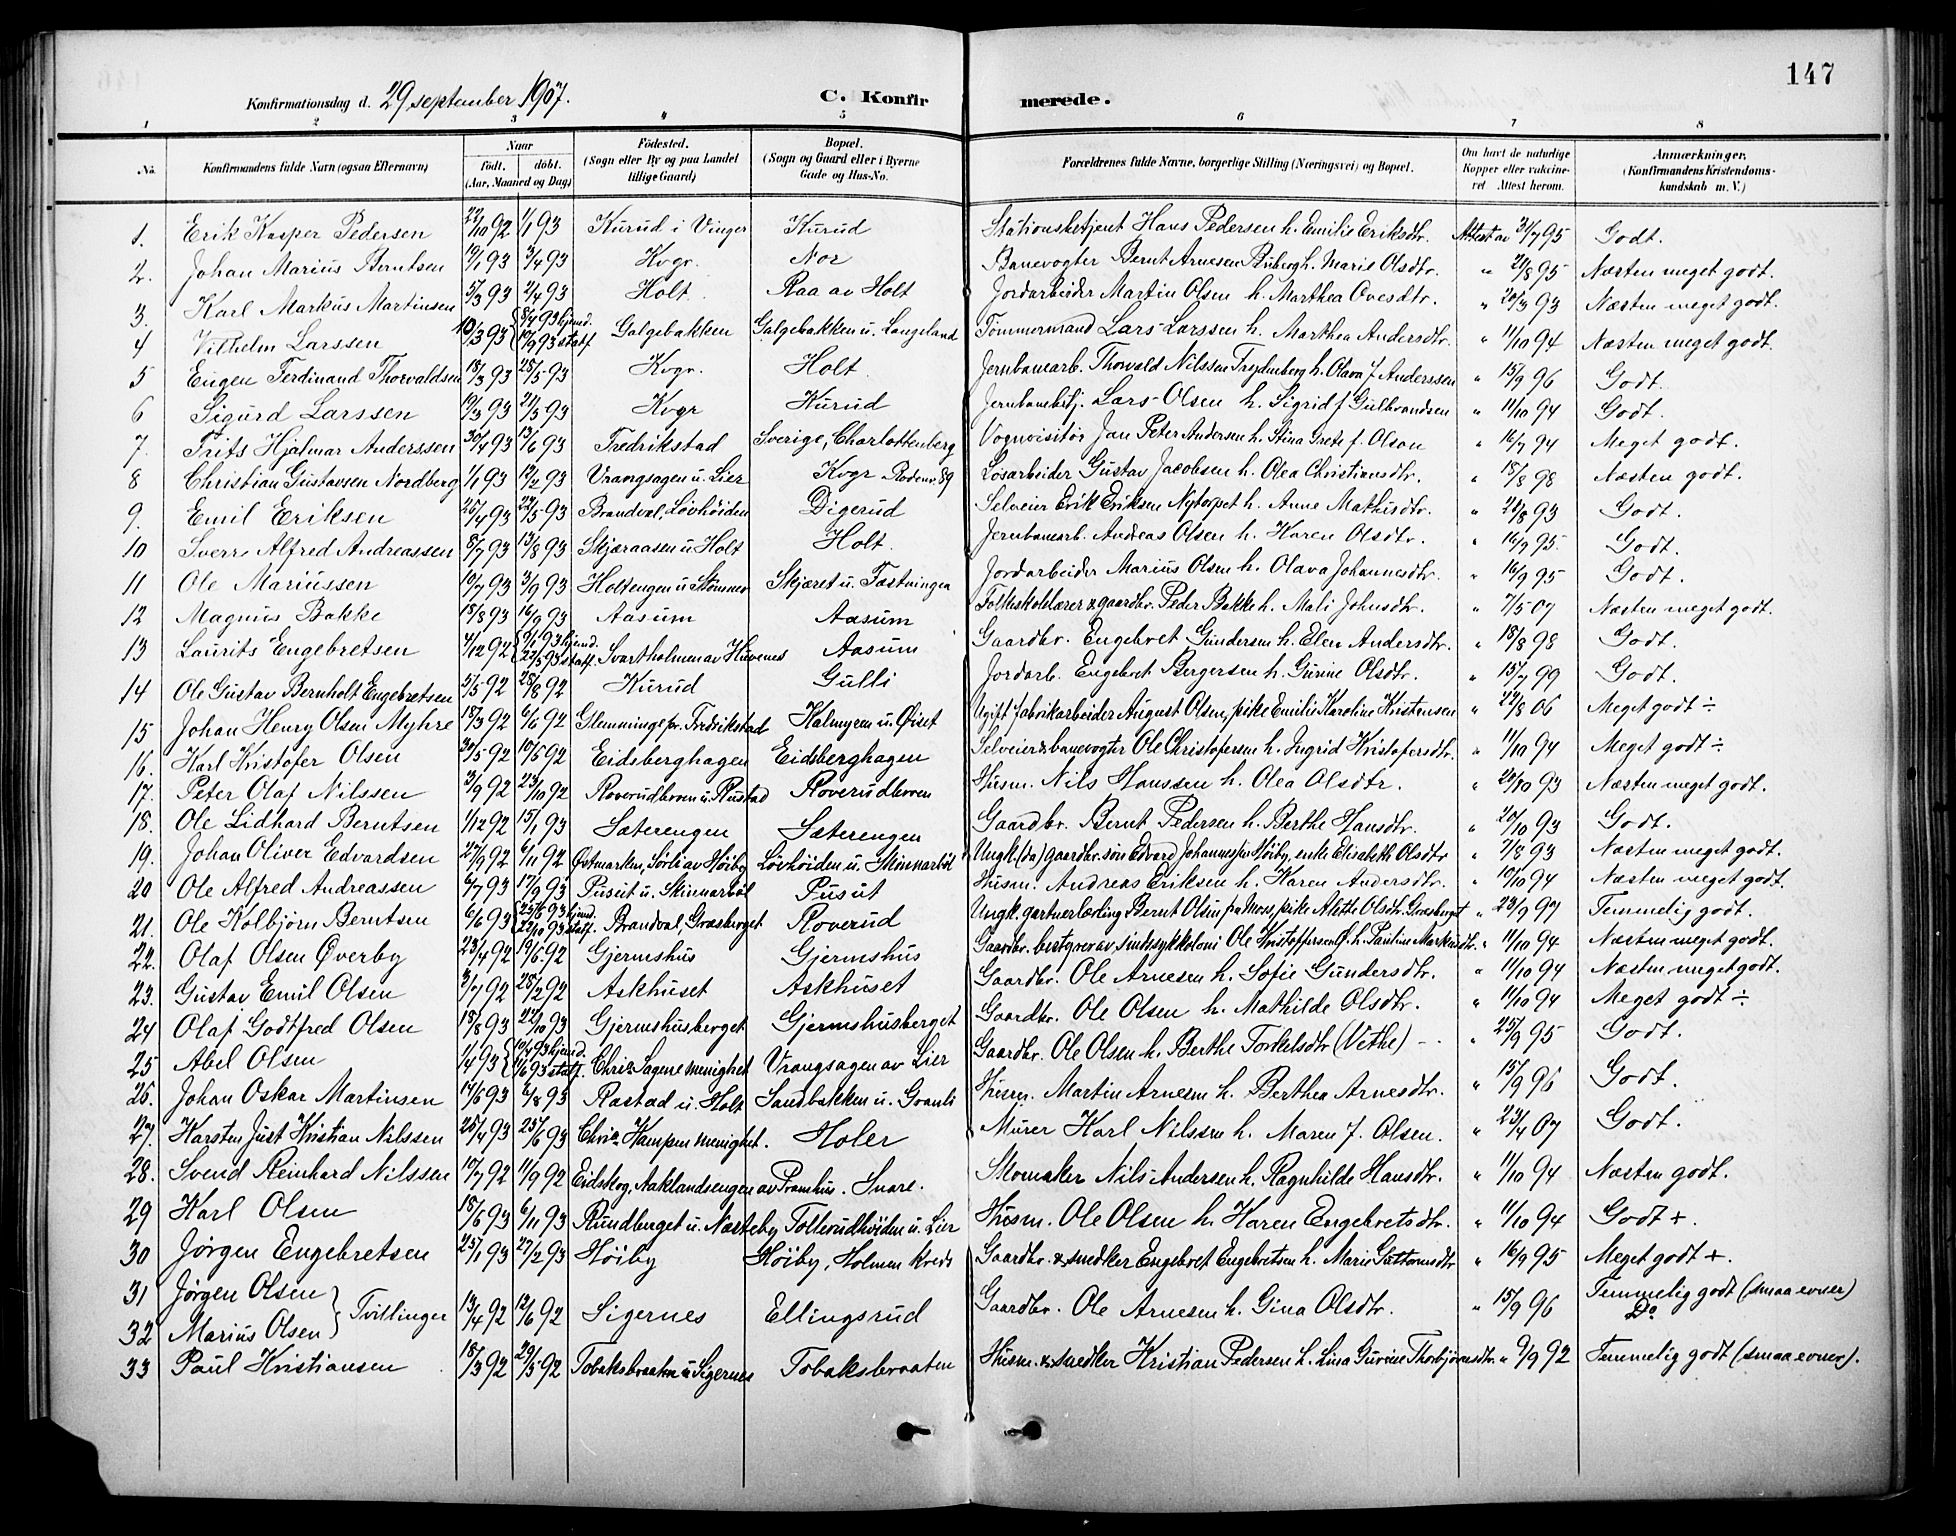 147
Konfirmationsdag d. 29 september 1907. C. Konfirmerede.
1 2 3 4 5 6 7 8
No. Konfirmandens fulde Navn (ogsaa Efternavn) Naar født. døbt. (Aar, Maaned og Dag) Fødested. (Sogn eller By og paa Landet tillige Gaard) Bopæl. (Sogn og Gaard eller i Byerne Gade og Hus-No. Forældrenes fulde Navne, borgerlige Stilling (Næringsvei) og Bopæl. Om havt de naturlige Kopper eller vakcineret Attest herom. Anmærkninger. (Konfirmandens Kristendomskundskab m. V.)
1. Erik Kasper Pedersen 22/10 92 1/1 93 Kurud i Vinger Kurud Stationsbetjent Hans Pedersen h. Emilie Eriksdtr. Attest av 31/7 95 Godt.
2. Johan Marius Berntsen 19/1 93 3/4 93 Kvgr. Nor Banevogter Bernt Arnesen Buberg h. Marie Olsdtr. " 21/8 95 Næsten meget godt.
3. Karl Markus Martinsen 5/3 93 2/4 93 Holt Raa av Holt Jordarbeider Martin Olsen h. Marthea Ovesdtr. " 20/3 93 Næsten meget godt.
4 Vilhelm Larssen 10/3 93 { 8/4 93 hjemd. 10/9 93 stadf. Galgebakken Galgebakken u. Langeland Tømmermand Lars Larssen h. Marthea Andersdtr. " 11/10 94 Næsten meget godt.
5 Eugen Ferdinand Thorvaldsen 18/3 93 28/5 93 Kvgr. Holt Jernbanearb. Thorvald Nilssen h. Olava f. Anderssen " 15/9 96 Godt.
6 Sigurd Larssen 19/3 93 21/5 93 Kvgr Kurud Jernbanebetj. Lars Olsen h. Sigrid f. Gulbrandsen " 11/10 94 Godt.
7. Frits Hjalmar Anderssen 30/4 93 13/6 93 Fredrikstad Sverige, Charlottenberg Vognvisitør Jan Peter Andersen h. Stina Grete f. Olson " 16/7 94 Meget godt.
8 Christian Gustavsen Nordberg 1/1 93 12/2 93 Vrangsagen u. Lier Kvgr Rodenr. 89 Løsarbeider Gustav Jacobsen h. Olea Christiansdtr. " 18/8 98 Næsten godt.
9. Emil Eriksen 25/4 93 22/5 93 Brandval, Løvhøiden Digerud Selveier Erik Eriksen Nytorpet h. Anne Mathisdtr. " 28/8 93 Godt.
10 Sverre Alfred Andreassen 8/7 93 13/8 93 Skjæraasen u. Holt Holt. Jernbanearb. Andreas Olsen h. Karen Olsdtr. " 16/9 95. Godt.
11 Ole Mariussen 10/7 93 3/9 93 Holtengen u. Strømnes Skjæret u. Fæstningen Jordarbeider Marius Olsen h. Olava Johannesdtr. " 16/9 95 Godt.
12 Magnus Bakke 18/8 93 16/9 93 Aasum Aasum Folkeskolelærer & gaardbr. Peder Bakke h. Mali Johnsdtr. " 7/5 07 Næsten meget godt.
13 Laurits Engebretsen 4/12 92 { 9/1 93 hjemd. 22/5 93 stadf. Svartholmen av Huvenes Aasum Gaardbr. Engebret Gundersen h. Elen Andersdtr. " 18/8 98 Godt.
14 Ole Gustav Bernholt Engebretsen 5/5 92 28/8 92 Kurud Gulli Jordarb. Engebret Bergersen h. Gurine Olsdtr. " 15/7 99 Godt.
15 Johan Henry Olsen Myhre 18/3 92 6/6 92 Glemminge pr. Fredrikstad Kalmyren u. Øiset Ugift fabrikarbeider August Olsen, pike Emilie Karoline Kristensen " 22/8 06 Meget godt ÷
16. Karl Kristofer Olsen 30/5 92 10/6 92 Eidsberghagen Eidsberghagen Selveier & banevogter Ole Christofersen h. Ingrid Kristofersdtr. " 11/10 94 Meget godt ÷
17. Peter Olaf Nilssen 3/9 92 23/10 92 Roverudbroen u. Rustad Roverudbroen Husm. Nils Hanssen h. Olea Olsdtr. " 20/10 93 Næsten meget godt.
18. Ole Lidhard Berntsen 1/12 92 15/1 93 Sæterengen Sæterengen Gaardbr. Bernt Pedersen h. Berthe Hansdtr. " 20/10 93 Godt.
19. Johan Oliver Edvardsen 27/9 92 6/11 92 Østmarken, Sørli av Høiby Løvhøiden u. Skinnarbøl Ungk. (da) gaardbr. søn Edvard Johannessen Høiby, enke Elisabeth Olsdtr " 7/8 93 Næsten meget godt.
20 Ole Alfred Andreassen 6/7 93 17/9 93 Pusut u. Skinnarbøl Pusut Husm. Andreas Eriksen h. Karen Andersdtr. " 10/10 94 Næsten meget godt.
21. Ole Kolbjørn Berntsen 6/6 93 { 25/6 93 hjemd. 22/10 93 stadf. Brandval, Græsberget Roverud Ungk. gartnerlærling Bernt Olsen, fra Moss, pike Alette Olsdtr. Græsberget " 23/9 97 Temmelig godt.
22. Olaf Olsen Øverby 23/4 92 19/6 92 Gjermshus Gjermshus Gaardbr. bestyrer av sindssykkoloni Ole Kristoffersen Ø. h. Pauline Markusdtr. " 11/10 94 Næsten meget godt.
23. Gustav Emil Olsen 3/1 92 28/2 92 Askhuset Askhuset Gaardbr. Ole Arnesen h. Sofie Gundersdtr. " 11/10 94 Næsten meget godt.
24 Olaf Godtfred Olsen 18/8 93 22/10 93 Gjermshusberget Gjermshusberget Gaardbr. Ole Olsen h. Mathilde Olsdtr. " 11/10 94 Meget godt ÷
25 Abel Olsen 1/4 93 { 10/4 93 hjemd. 11/6 93 stadf. Chria Sagene menighet Vrangsagen av Lier Gaardbr. Ole Olsen h. Berthe Torkelsdtr (Vethe) " 25/9 95 Godt.
26. Johan Oskar Martinsen 17/6 93 6/8 93 Rastad u. Holt Sandbakken u. Granli Husm. Martin Arnesen h. Berthea Arnesdtr. " 15/9 96 Godt.
27. Karsten Just Kristian Nilssen 25/4 93 25/6 93 Chria Kampen menighet. Holer Murer Karl Nilssen h. Maren f. Olsen. " 23/4 07 Godt.
28. Svend Reinhard Nilssen 17/7 92 11/9 92 Eidskog, Aaklandsengen av Pramhus. Snare. Skomaker Nils Andersen h. Ragnhilde Hansdtr. " 11/10 94 Næsten godt.
29 Karl Olsen 18/6 93 6/11 93 Rundberget u. Næsteby Tollerudhøiden u. Lier Husm. Ole Olsen h. Karen Engebretsdtr. " 11/10 94 Godt +.
30 Jørgen Engebretsen 25/1 93 27/2 93 Høiby Høiby, Holmen kreds Gaardbr. & snedker Engebret Engebretsen h. Marie Guttormsdtr " 16/9 95 Meget godt +.
31 Jørgen Olsen } Tvillinger 13/4 92 12/6 92 Sigernes Ellingsrud Gaardbr. Ole Arnesen h. Gina Olsdtr. " 15/9 96 Temmelig godt (smaa evner)
32 Marius Olsen Do
33 Paul Kristiansen 18/3 92 29/5 92 Tobaksbraaten u. Sigernes Tobaksbraaten Husm. & snedker Kristian Pedersen h. Lina Gurine Thorbjørnsdtr. " 9/9 92 Temmelig godt (smaa evner).